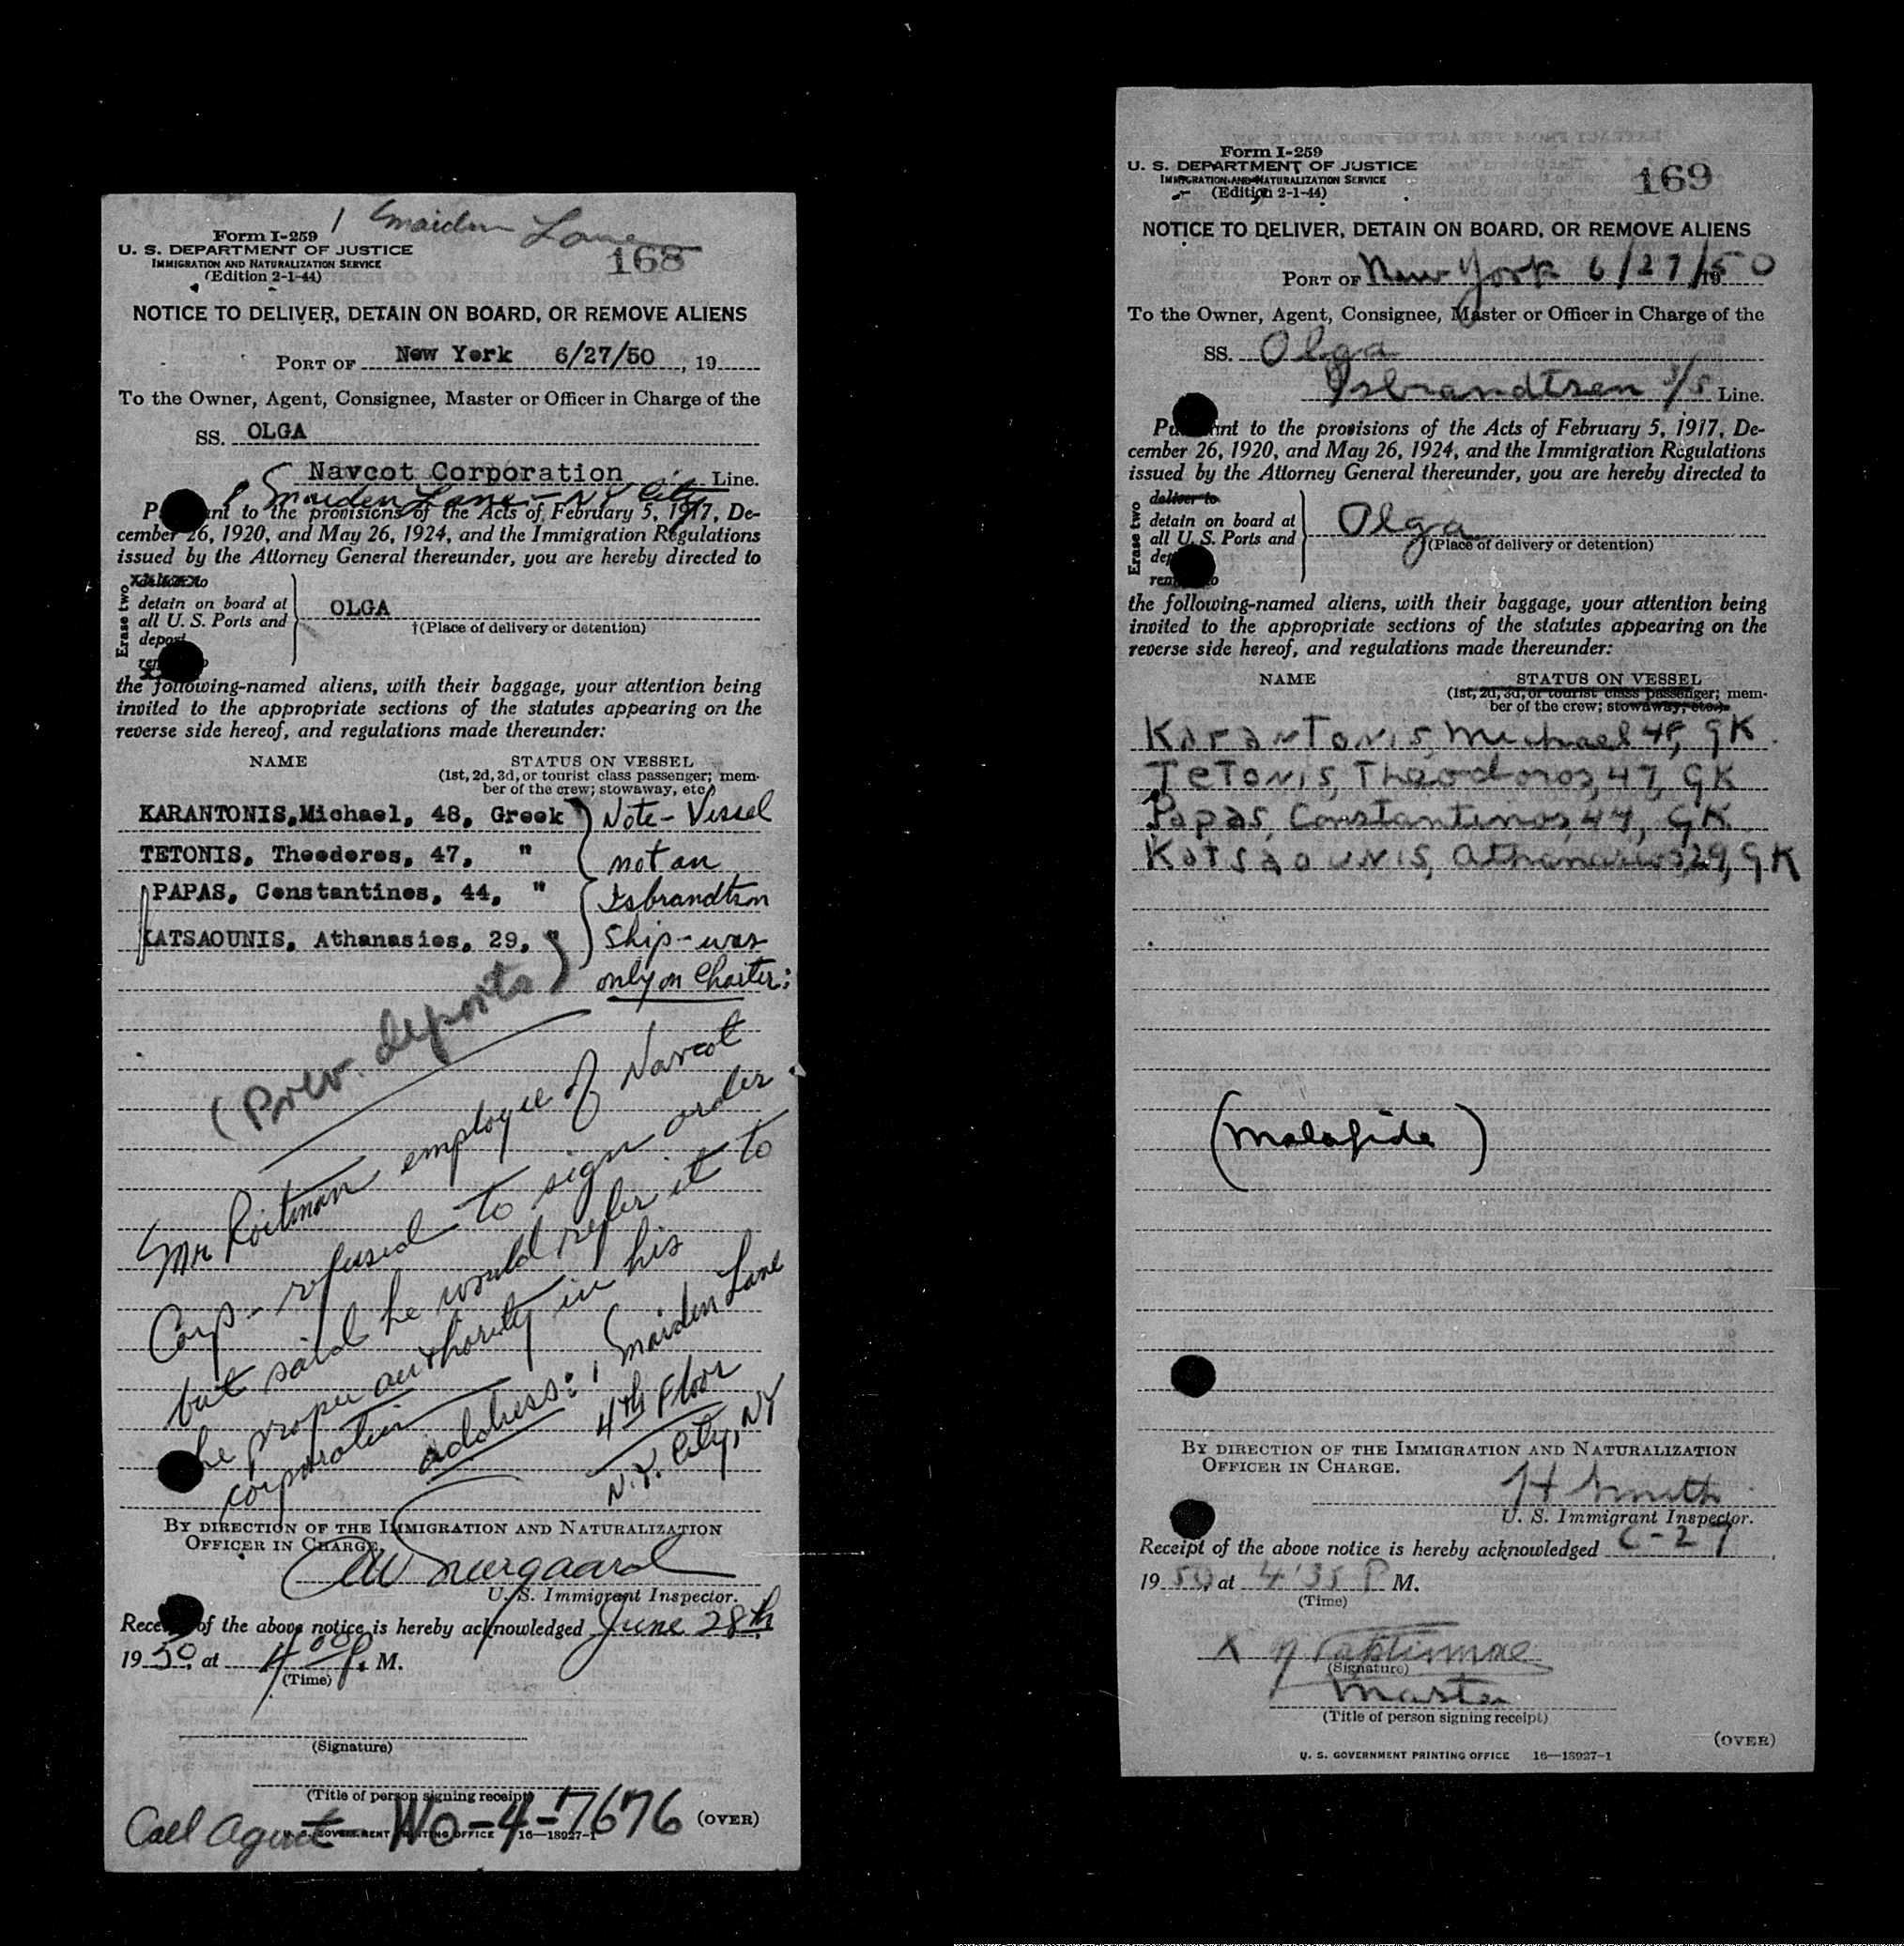 1 Maiden Lane
Form I-259
U. S. DEPARTMENT OF JUSTICE
IMMIGRATION AND NATURALIZATION SERVICE
(Edition 2-1-44)
168
NOTICE TO DELIVER, DETAIN ON BOARD, OR REMOVE ALIENS
PORT OF New York 6/27/50, 19
To the Owner, Agent, Consignee, Master or Officer in Charge of the
SS. OLGA
Navcot Corporation Line.
1 Maiden Lane - NY City
P nt to the provisions of the Acts of February 5, 1917, De-
cember 26, 1920, and May 26, 1924, and the Immigration Regulations
issued by the Attorney General thereunder, you are hereby directed to
Erase two
deliver to
detain on board at
all U. S. Ports and
deport
OLGA
†(Place of delivery or detention)
the following-named aliens, with their baggage, your attention being
invited to the appropriate sections of the statutes appearing on the
reverse side hereof, and regulations made thereunder:
NAME STATUS ON VESSEL
(1st, 2d, 3d, or tourist class passenger; mem-
ber of the crew; stowaway, etc.)
KARANTONIS, Michael, 48, Greek } Note - Vessel
TETONIS, Theoderes, 47, " not an
PAPAS, Constantines, 44, " Isbrandtsn
KATSAOUNIS, Athanasies, 29, " Ship - was
only on Charter:
(Prev. deports)
Mr Roitman employee of Navcot
Corp - refused to sign order.
but said he would refer it to
he proper authority in his
corporation
address: 1 Maiden Lane
4th Floor
N.Y. City, NY
BY DIRECTION OF THE IMMIGRATION AND NATURALIZATION
OFFICER IN CHARGE.
U. S. Immigrant Inspector.
Rece of the above notice is hereby acknowledged June 28th
1950, at 4 00 P. M.
(Time)
(Signature)
(Title of person signing receipt)
Call Agent - Wo-4-7676 (OVER)
U. S. GOVERNMENT PRINTING OFFICE 16—18927-1
Form I-259
U. S. DEPARTMENT OF JUSTICE
IMMIGRATION AND NATURALIZATION SERVICE
(Edition 2-1-44)
169
NOTICE TO DELIVER, DETAIN ON BOARD, OR REMOVE ALIENS
PORT OF New York 6/27/1950
To the Owner, Agent, Consignee, Master or Officer in Charge of the
SS. Olga
Isbrandtsen S/S Line.
Pu ant to the provisions of the Acts of February 5, 1917, De-
cember 26, 1920, and May 26, 1924, and the Immigration Regulations
issued by the Attorney General thereunder, you are hereby directed to
Erase two
deliver to
detain on board at
all U. S. Ports and
Olga
(Place of delivery or detention)
the following-named aliens, with their baggage, your attention being
invited to the appropriate sections of the statutes appearing on the
reverse side hereof, and regulations made thereunder:
NAME STATUS ON VESSEL
(1st, 2d, 3d, or tourist class passenger; mem-
ber of the crew; stowaway, etc.)
Karantonis, Michael 48, GK.
Tetonis, Theodoros, 47, GK
Papas, Constantinos, 44, GK
Katsaounis, Athanasios, 29, GK
(Malafide)
BY DIRECTION OF THE IMMIGRATION AND NATURALIZATION
OFFICER IN CHARGE.
H Smith
U. S. Immigrant Inspector.
Receipt of the above notice is hereby acknowledged 6-27,
1950, at 4:35 P M.
(Time)
X
(Signature)
Master
(Title of person signing receipt)
(OVER)
U. S. GOVERNMENT PRINTING OFFICE 16—18927-1